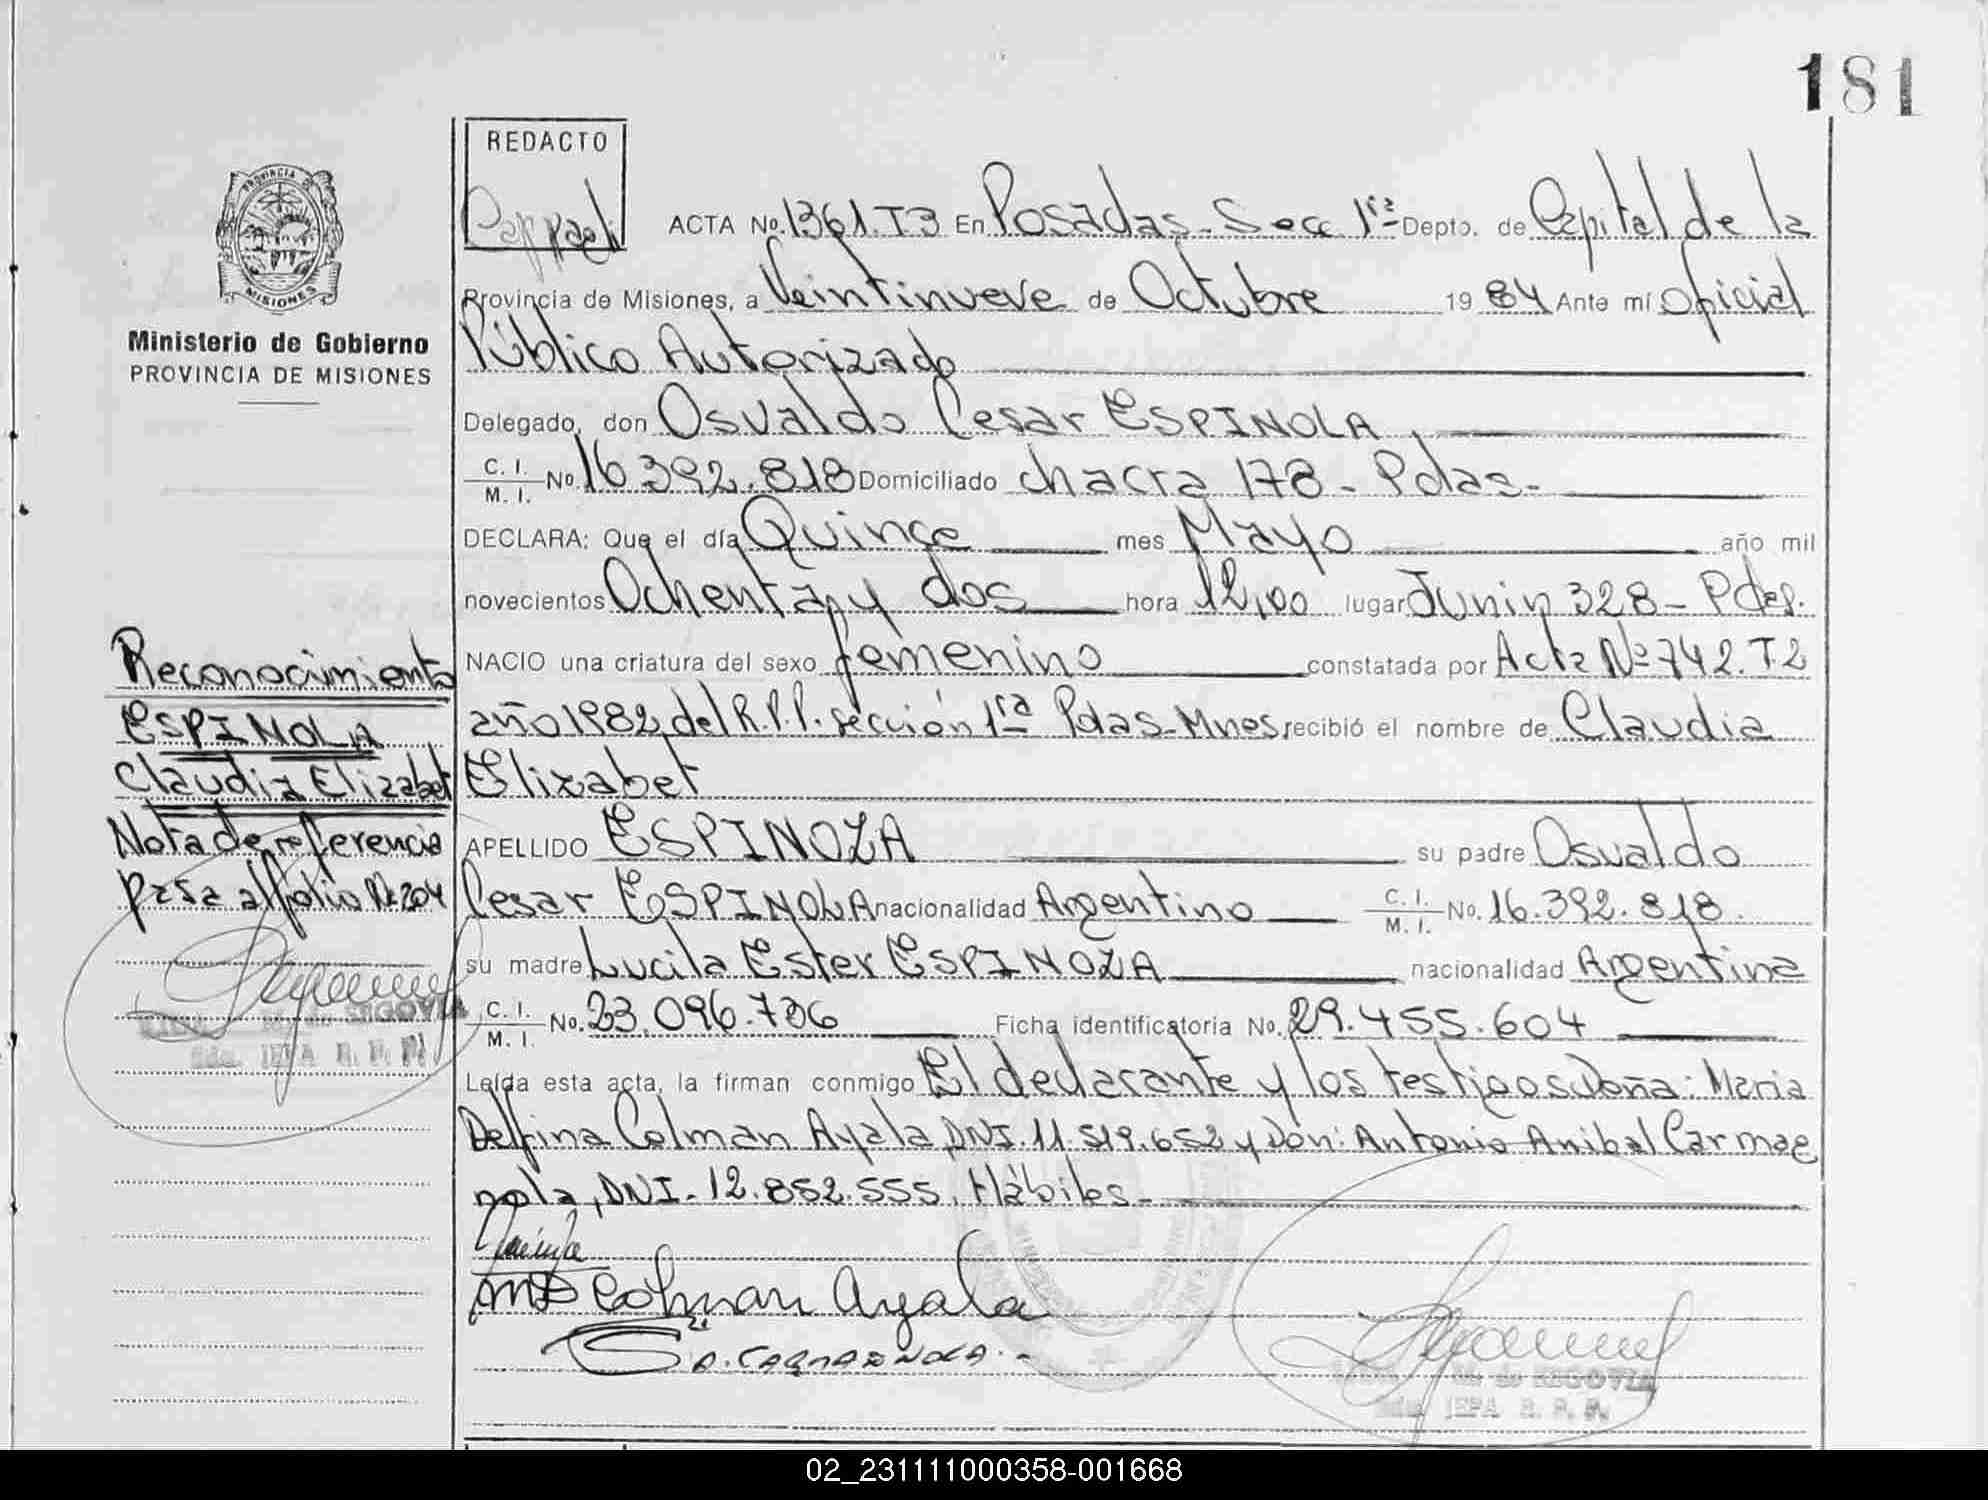 181
REDACTO
PROVINCIA DE
MISIONES
Ministerio de Gobierno
PROVINCIA DE MISIONES
ACTA No. 1361. T3 En Posadas - Secc 1ra Depto. de Capital de la
Provincia de Misiones, a Veintinueve de Octubre 19 84 Ante mí Oficial
Público Autorizado
Delegado, don Osvaldo Cesar ESPINOLA,
C. I.
M. I. No. 16.392.818 Domiciliado chacra 178 - Pdas.-
DECLARA: Que el día Quince mes Mayo año mil
novecientos Ochenta y dos hora 12,00 lugar Junin 328 - Pdas.
NACIO una criatura del sexo femenino constatada por Acta Nº 742. T2
año 1982 del R.P.P. sección 1ra Pdas - Mnes, recibió el nombre de Claudia
Elizabet
APELLIDO ESPINOZA su padre Osvaldo
Cesar ESPINOLA nacionalidad Argentino C. I.
M. I. No. 16.392.818.
su madre Lucila Ester ESPINOZA nacionalidad Argentina
C. I.
M. I. No. 23.096.736 Ficha identificatoria No. 29.455.604
Leída esta acta, la firman conmigo El declarante y los testigos Doña: Maria
Delfina Colman Ayala, DNI. 11.519.652 y Don: Antonio Anibal Carmag
nola, DNI. 12.852.555, Hábiles.-
MD Colman Ayala
A. CARMAGNOLA.-
de SEGOVIA
JEFA R. P. P.
Reconocimiento
ESPINOLA
Claudia Elizabet
Nota de referencia
pasa al folio Nº 204
de SEGOVIA
JEFA R. P. P.
02_231111000358-001668